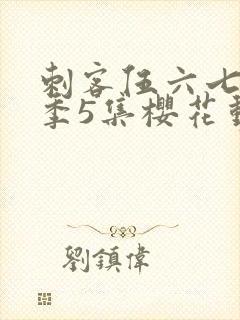 刺客伍六七
季5集櫻花動
劉鎮偉